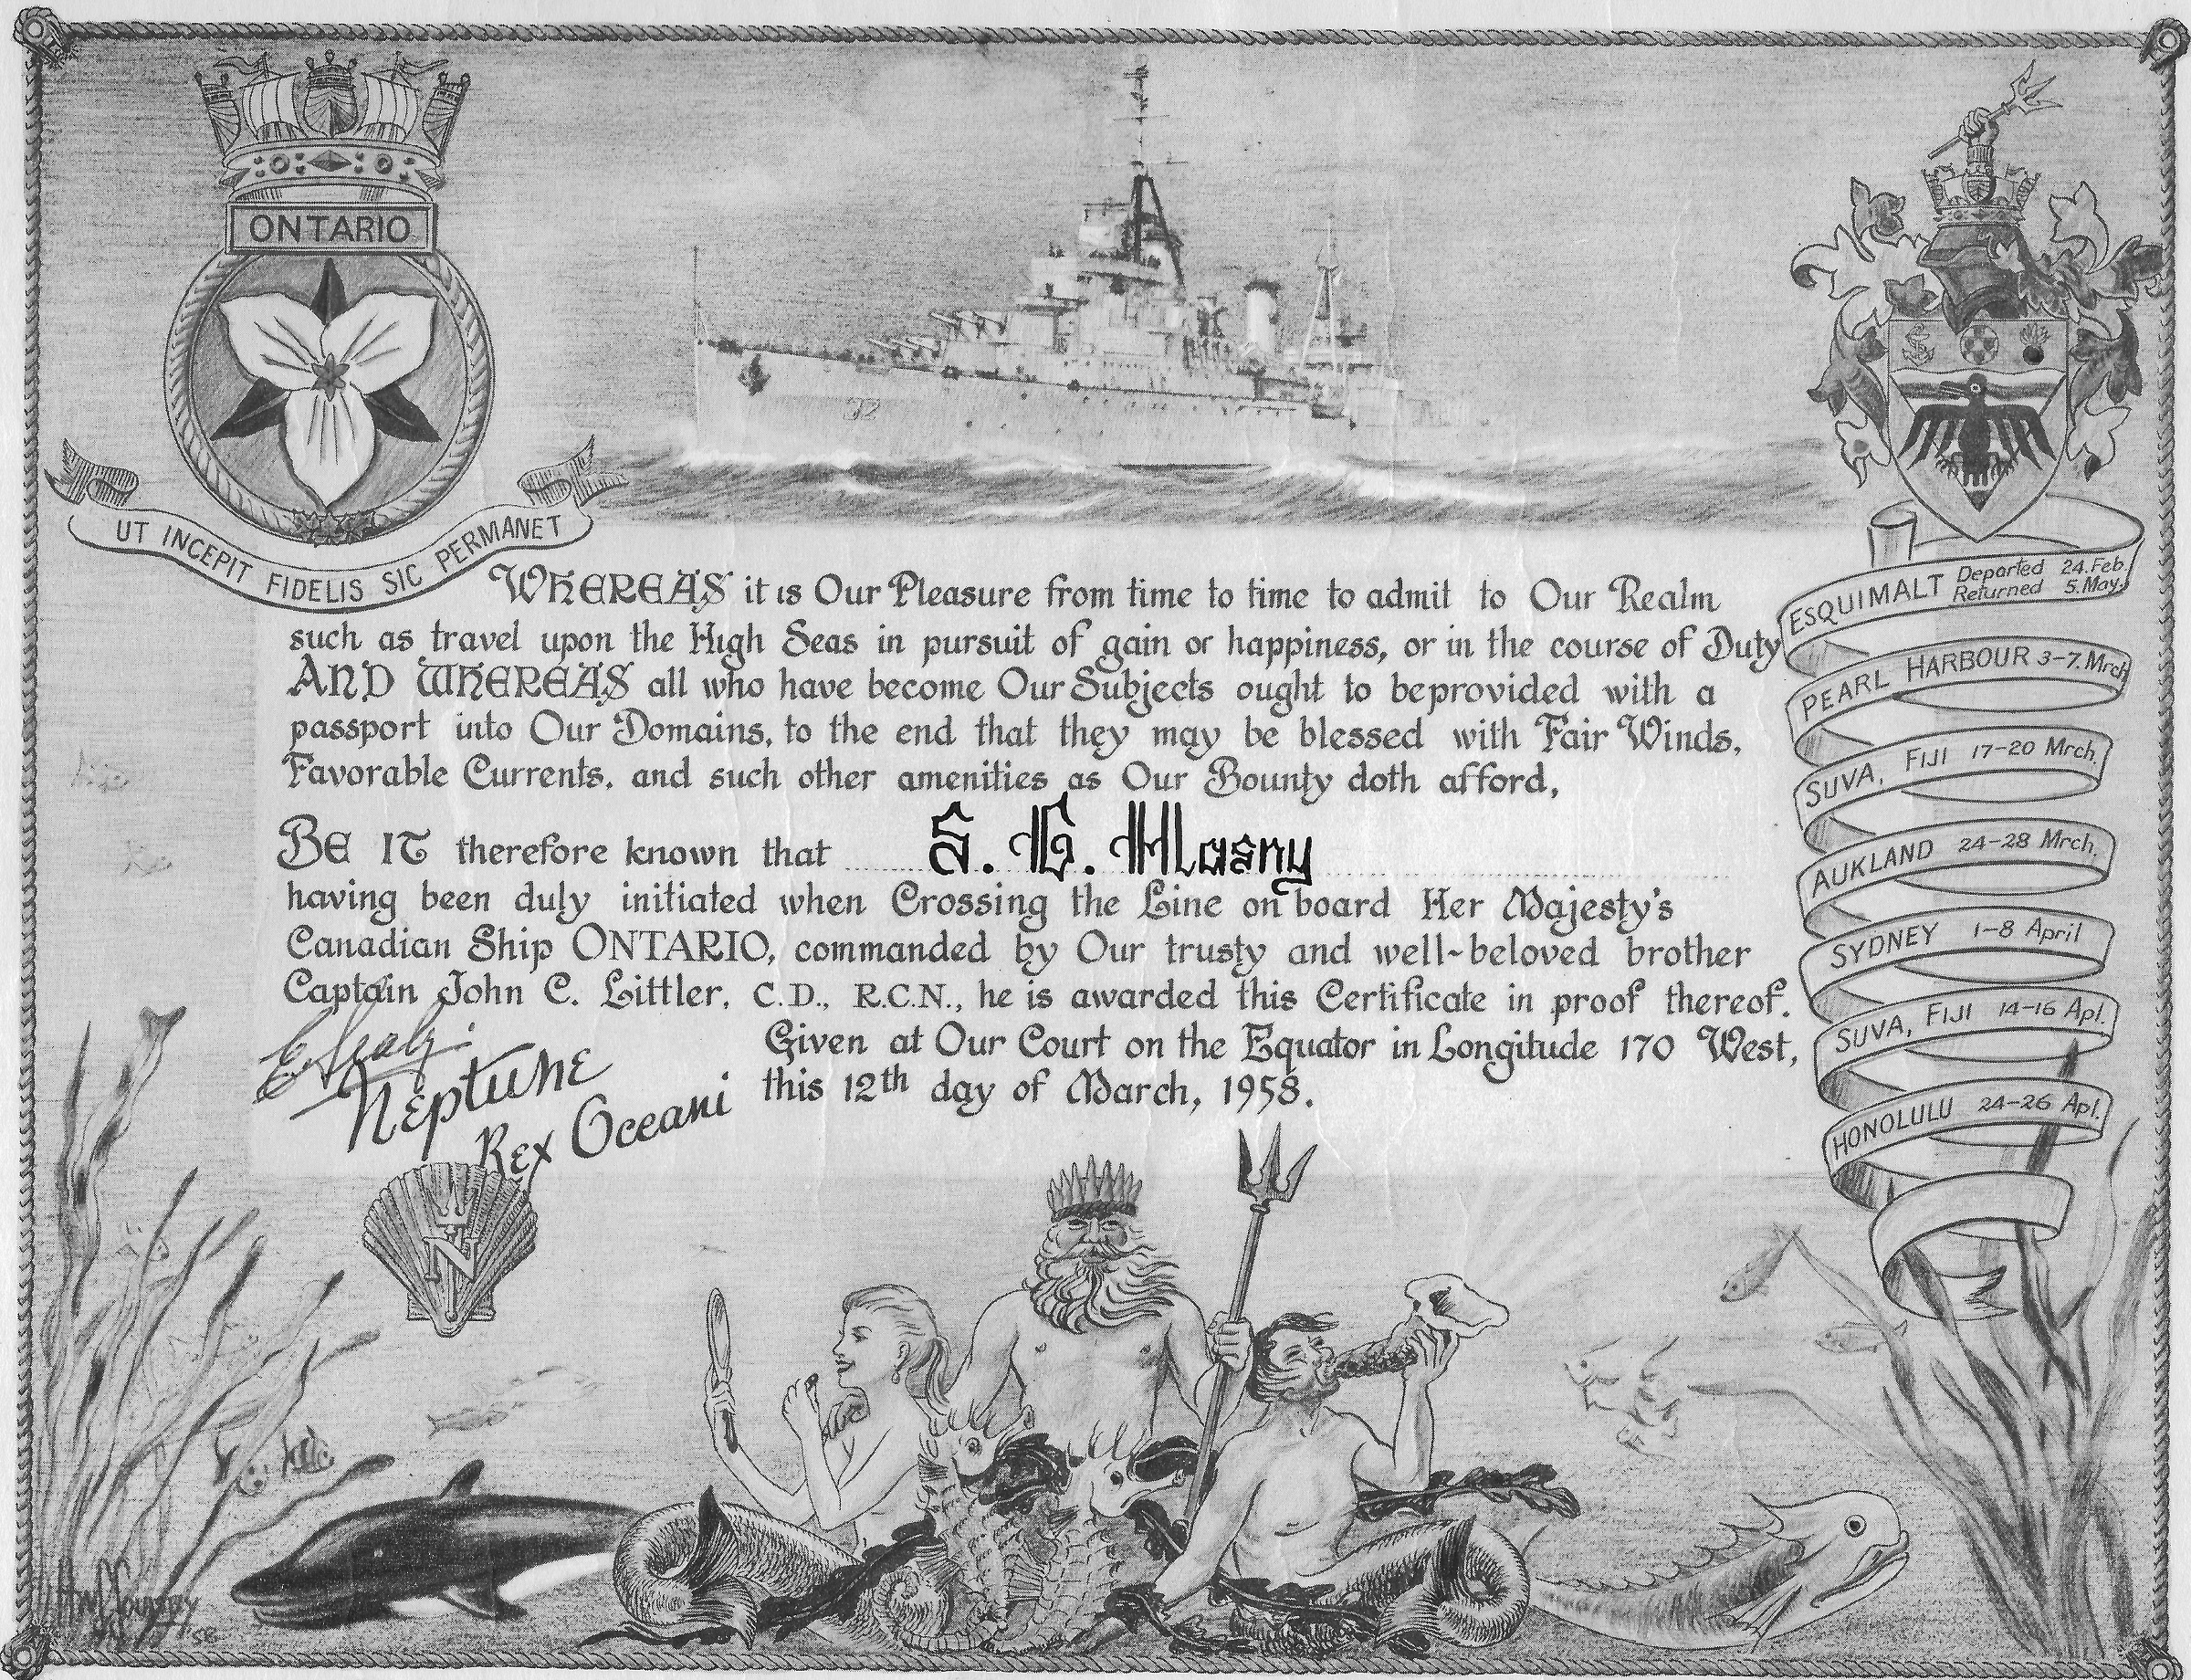 ONTARIO
UT INCEPIT FIDELIS SIC PERMANET
WHEREAS it is Our Pleasure from time to time to admit to Our Realm
such as travel upon the High Seas in pursuit of gain or happiness, or in the course of Duty
AND WHEREAS all who have become Our Subjects ought to beprovided with a
passport into Our Domains, to the end that they may be blessed with Fair Winds,
Favorable Currents, and such other amenities as Our Bounty doth afford,
BE IT therefore known that S. G. Hlasny
having been duly initiated when Crossing the Line on board Her Majesty's
Canadian Ship ONTARIO, commanded by Our trusty and well-beloved brother
Captain John C. Littler, C.D., R.C.N., he is awarded this Certificate in proof thereof.
Given at Our Court on the Equator in Longitude 170 West,
this 12th day of March, 1958.
Neptune
Rex Oceani
N
ESQUIMALT Departed 24.Feb.
Returned 5.May.
PEARL HARBOUR 3-7.Mrch
SUVA, FIJI 17-20 Mrch.
AUKLAND 24-28 Mrch.
SYDNEY 1-8 April
SUVA, FIJI 14-16 Apl.
HONOLULU 24-26 Apl.
'58